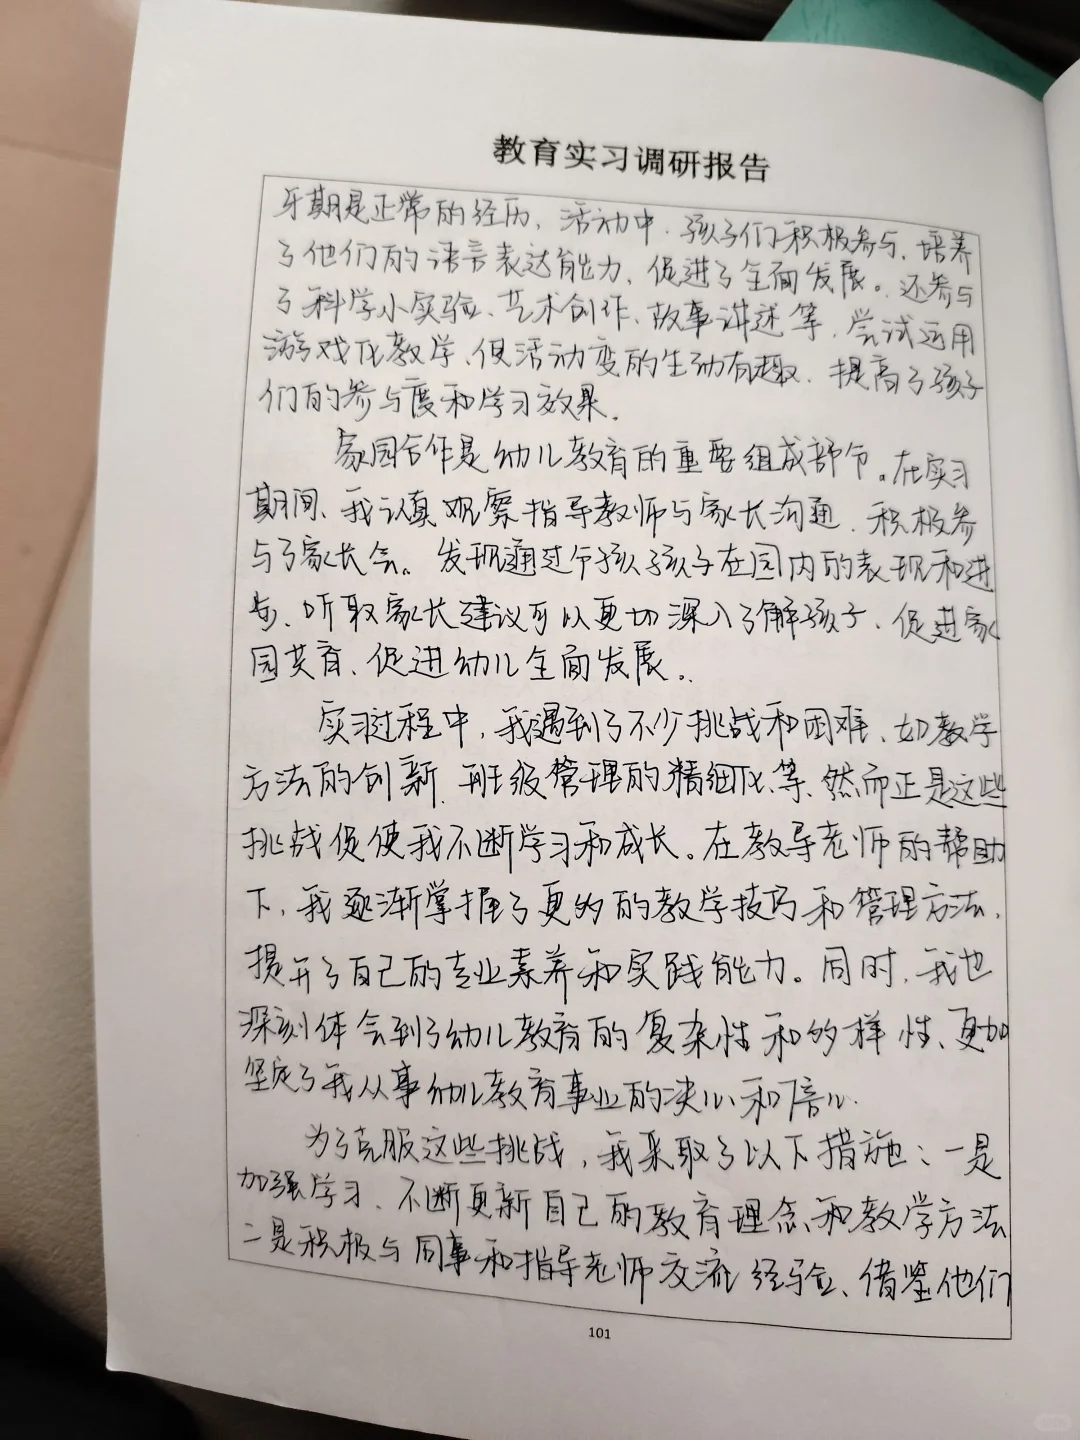 教育实习调研报告
牙期是正常的经历，活动中，孩子们积极参与，培养
了他们的语言表达能力，促进了全面发展。还参与
了科学小实验、艺术创作、故事讲述等，尝试运用
游戏化教学，使活动变的生动有趣，提高了孩子
们的参与度和学习效果。
家园合作是幼儿教育的重要组成部分。在实习
期间，我认真观察指导教师与家长沟通，积极参
与了家长会。发现通过个孩孩子在园内的表现和进
步，听取家长建议可以更切深入了解孩子，促进家
园共育、促进幼儿全面发展。
实习过程中，我遇到了不少挑战和困难，如教学
方法的创新、班级管理的精细化、等，然而正是这些
挑战促使我不断学习和成长。在教导老师的帮助
下，我逐渐掌握了更多的教学技巧和管理方法，
提升了自己的专业素养和实践能力。同时，我也
深刻体会到了幼儿教育的复杂性和多样性、更加
坚定了我从事幼儿教育事业的决心和信心.
为了克服这些挑战，我采取了以下措施：一是
加强学习、不断更新自己的教育理念和教学方法
二是积极与同事和指导老师交流经验、借鉴他们
101